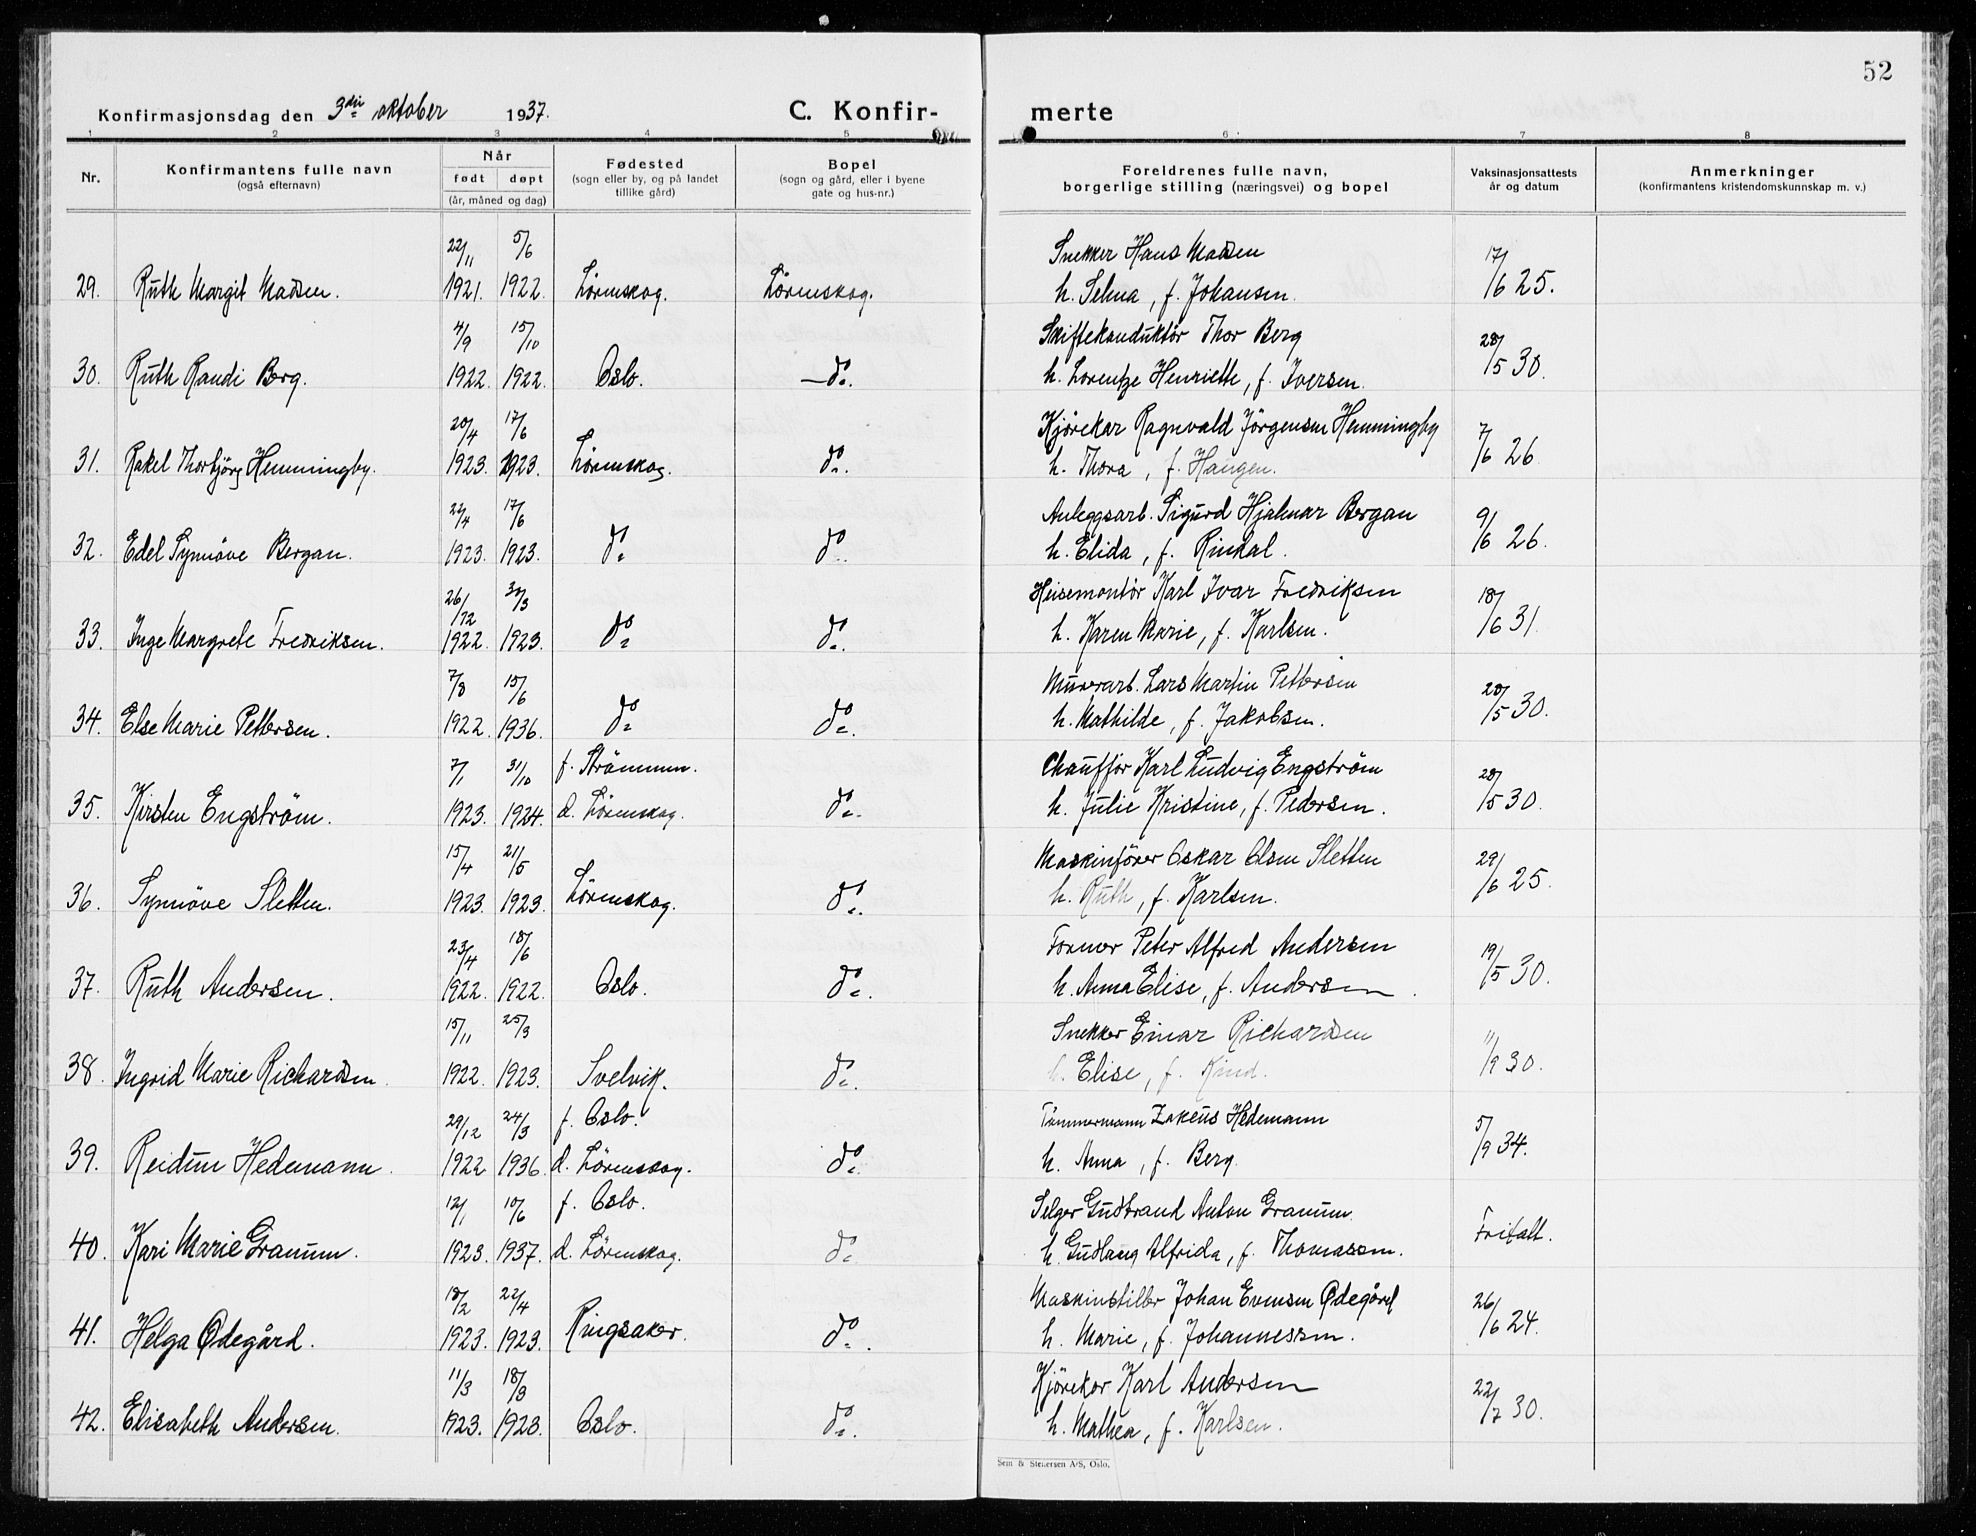 52
Konfirmasjonsdag den 3die oktober 1937.
C. Konfir-
merte
1 2 3 4 5 6 7 8
Nr.
Konfirmantens fulle navn
(også efternavn)
Når
født døpt
(år, måned og dag)
Fødested
(sogn eller by, og på landet
tillike gård)
Bopel
(sogn og gård, eller i byene
gate og hus-nr.)
Foreldrenes fulle navn,
borgerlige stilling (næringsvei) og bopel
Vaksinasjonsattests
år og datum
Anmerkninger
(konfirmantens kristendomskunnskap m. v.)
22/11 5/6 Snekker Hans Madsen 17/
29. Ruth Margit Madsen. 1921. 1922. Lörenskog. Lörenskog. h. Selma, f. Johansen. /6 25.
4/9 15/10 Skiftekonduktör Thor Berg 28/
30. Ruth Randi Berg. 1922. 1922. Oslo. — do. h. Lorentze Henriette, f. Iversen. /5 30.
20/4 17/6 Kjörekar Ragnvald Jörgensen Hemmingby 7/
31. Rakel Thorbjörg Hemmingby. 1923. 1923. Lörenskog. do. h. Thora, f. Haugen. /6 26
22/4 17/6 Anleggsarb. Sigurd Hjalmar Bergan 9/
32. Edel Synnöve Bergan. 1923. 1923. do do h. Elida, f. Rindal. /6 26.
26/12 Heisemontör Karl Ivar Fredriksen 18/
33. Inge Margrete Fredriksen. 1922. 1923. do do. h. Karen Marie, f. Karlsen. /6 31.
7/8 15/6 Murerarb. Lars Martin Pettersen 28/
34. Else Marie Pettersen. 1922. 1936. do do. h. Mathilde, f. Jakobsen. /5 30.
7/1 31/10 f. Strömmen. Chaufför Karl Ludvig Engström 28/
35. Kirsten Engström. 1923. 1924. d. Lörenskog. do. h. Julie Kristine, f. Pedersen. /5 30.
15/4 21/5 Maskinförer Oskar Olsen Sletten 29/
36. Synnöve Sletten. 1923. 1923. Lörenskog. do. h. Ruth, f. Karlsen. /6 25.
23/4 18/6 Former Peter Alfred Andersen 19/
37. Ruth Andersen. 1922. 1922. Oslo. do. h. Anna Elise, f. Andersen. /5 30.
15/11 25/3 Snekker Einar Richardsen 11/
38. Ingrid Marie Richardsen 1922. 1923. Svelvik. do. h. Elise, f. Kind. /9 30.
29/12 24/3 f. Oslo. Tömmermann Zakeus Hedemann 5/
39. Reidun Hedemann. 1922 1936. d. Lörenskog. do. h. Anna, f. Berg. /9 34.
12/1 10/6 f. Oslo. Selger Gudbrand Anton Granum.
40. Kari Marie Granum. 1923. 1937. d. Lörenskog. do. h. Gudlaug Alfrida, f. Thomassen. Fritatt.
18/2 22/4 Maskinstiller Johan Evensen Ødegård 26/
41. Helga Ødegård. 1923. 1923. Ringsaker. do. h. Marie, f. Johannessen. /6 24.
11/3 18/3 Kjörekar Karl Andersen 22/
42. Elisabeth Andersen. 1923. 1923. Oslo. do. h. Mathea, f. Karlsen. /7 30.
Sem & Stenersen A/S, Oslo.